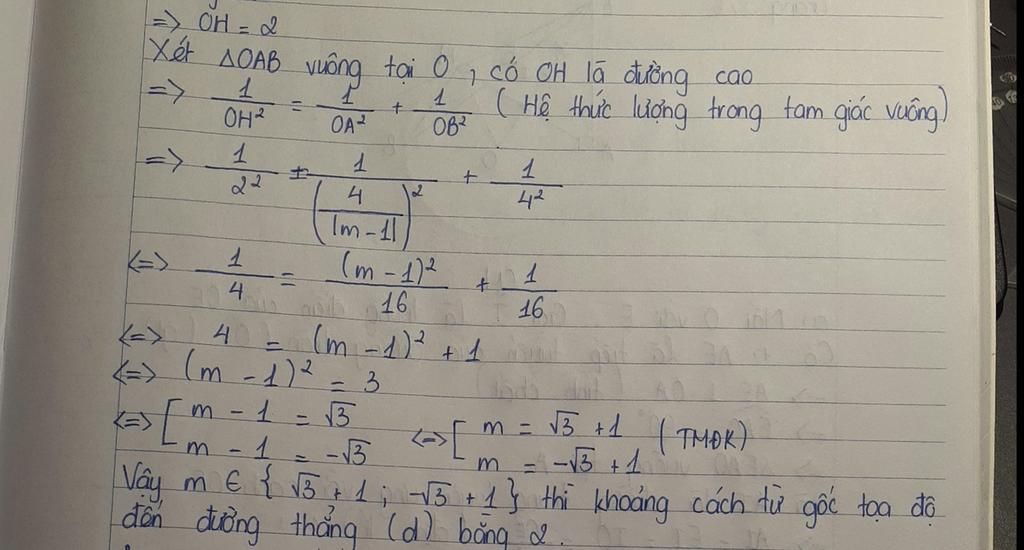 => OH = 2
Xét △OAB vuông tại O, có OH là đường cao
=> 1/OH² = 1/OA² + 1/OB² (Hệ thức lượng trong tam giác vuông)
=> 1/2² = 1/(4/|m-1|)² + 1/4²
<=> 1/4 = (m-1)²/16 + 1/16
<=> 4 = (m-1)² + 1
<=> (m-1)² = 3
<=> [ m - 1 = √3 ; m - 1 = -√3 <=> [ m = √3 + 1 ; m = -√3 + 1 (TMĐK)
Vậy m ∈ {√3 + 1 ; -√3 + 1} thì khoảng cách từ gốc tọa độ
đến đường thẳng (d) bằng 2.